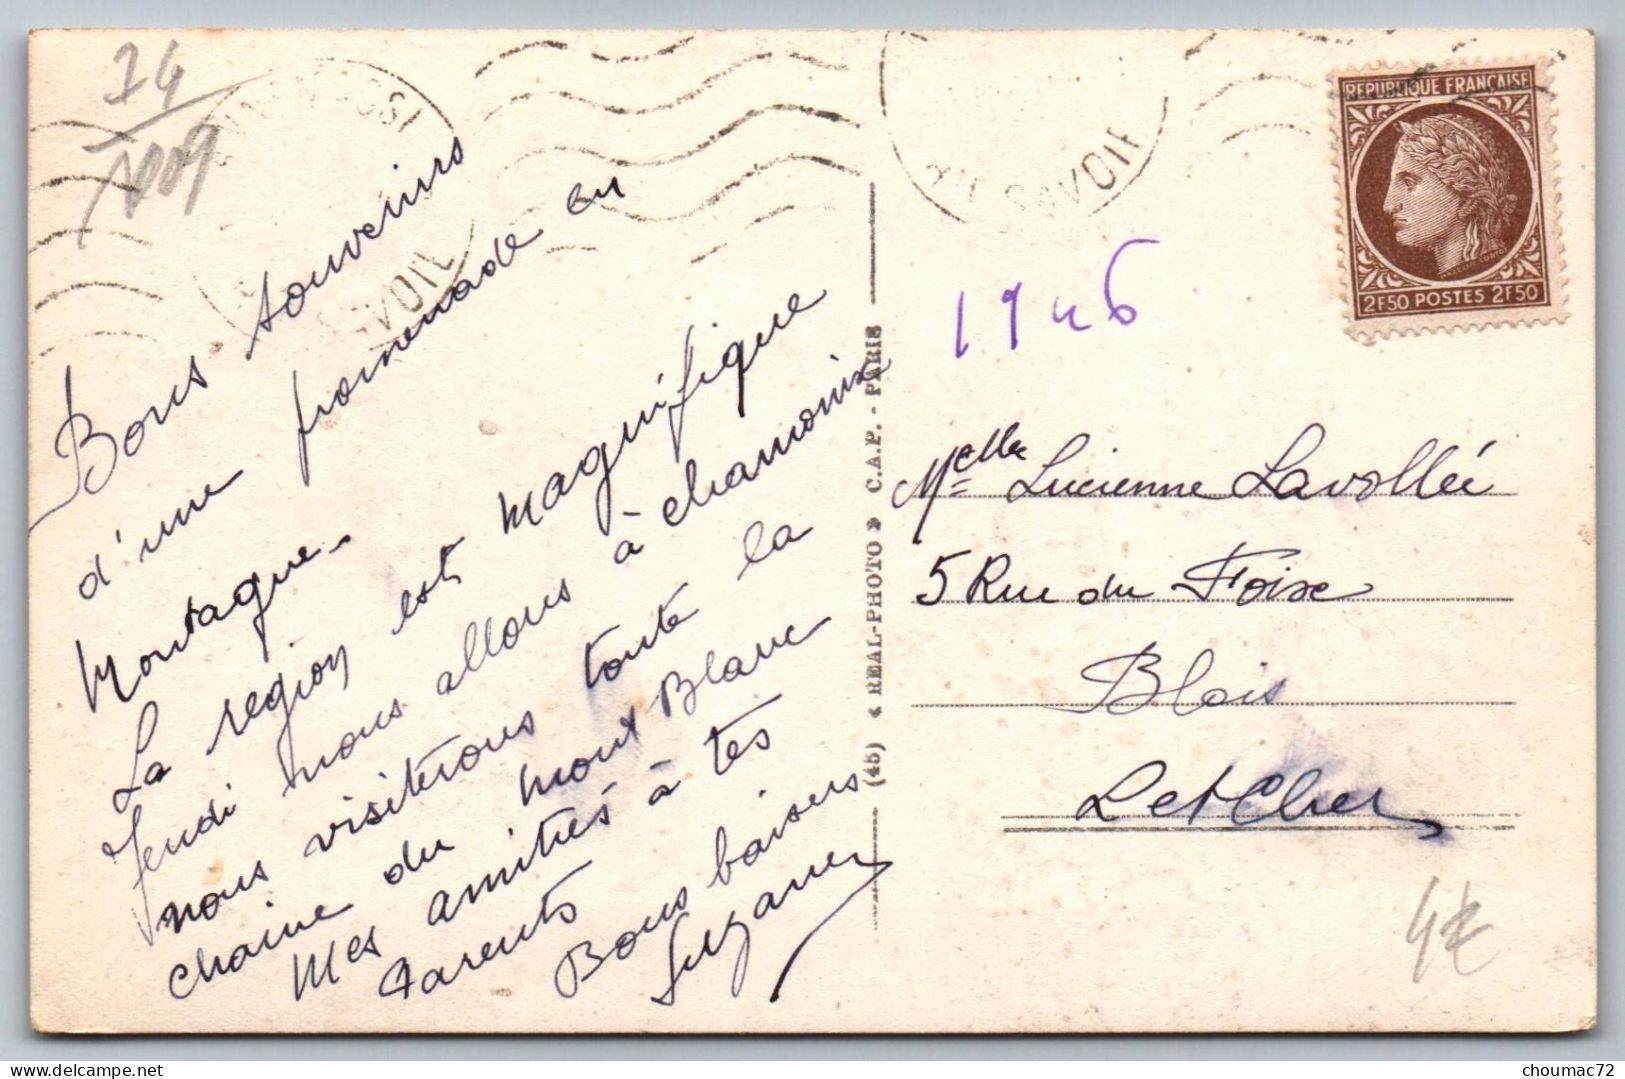 74
1009
Bons souvenirs
d'une promenade en
Montagne.
La region est magnifique
Jeudi nous allons à chamonix
nous visiterons toute la
chaine du mont Blanc
Mes amitiés à tes
Parents
Bons baisers
Suzanne
(45) « REAL-PHOTO » C.A.P. - PARIS
SAVOIE
SAVOIE
REPUBLIQUE FRANÇAISE
2F50 POSTES 2F50
1946
Melle Lucienne Lavollée
5 Rue du Foix
Blois
L et Cher
4€
delcampe.net
choumac72